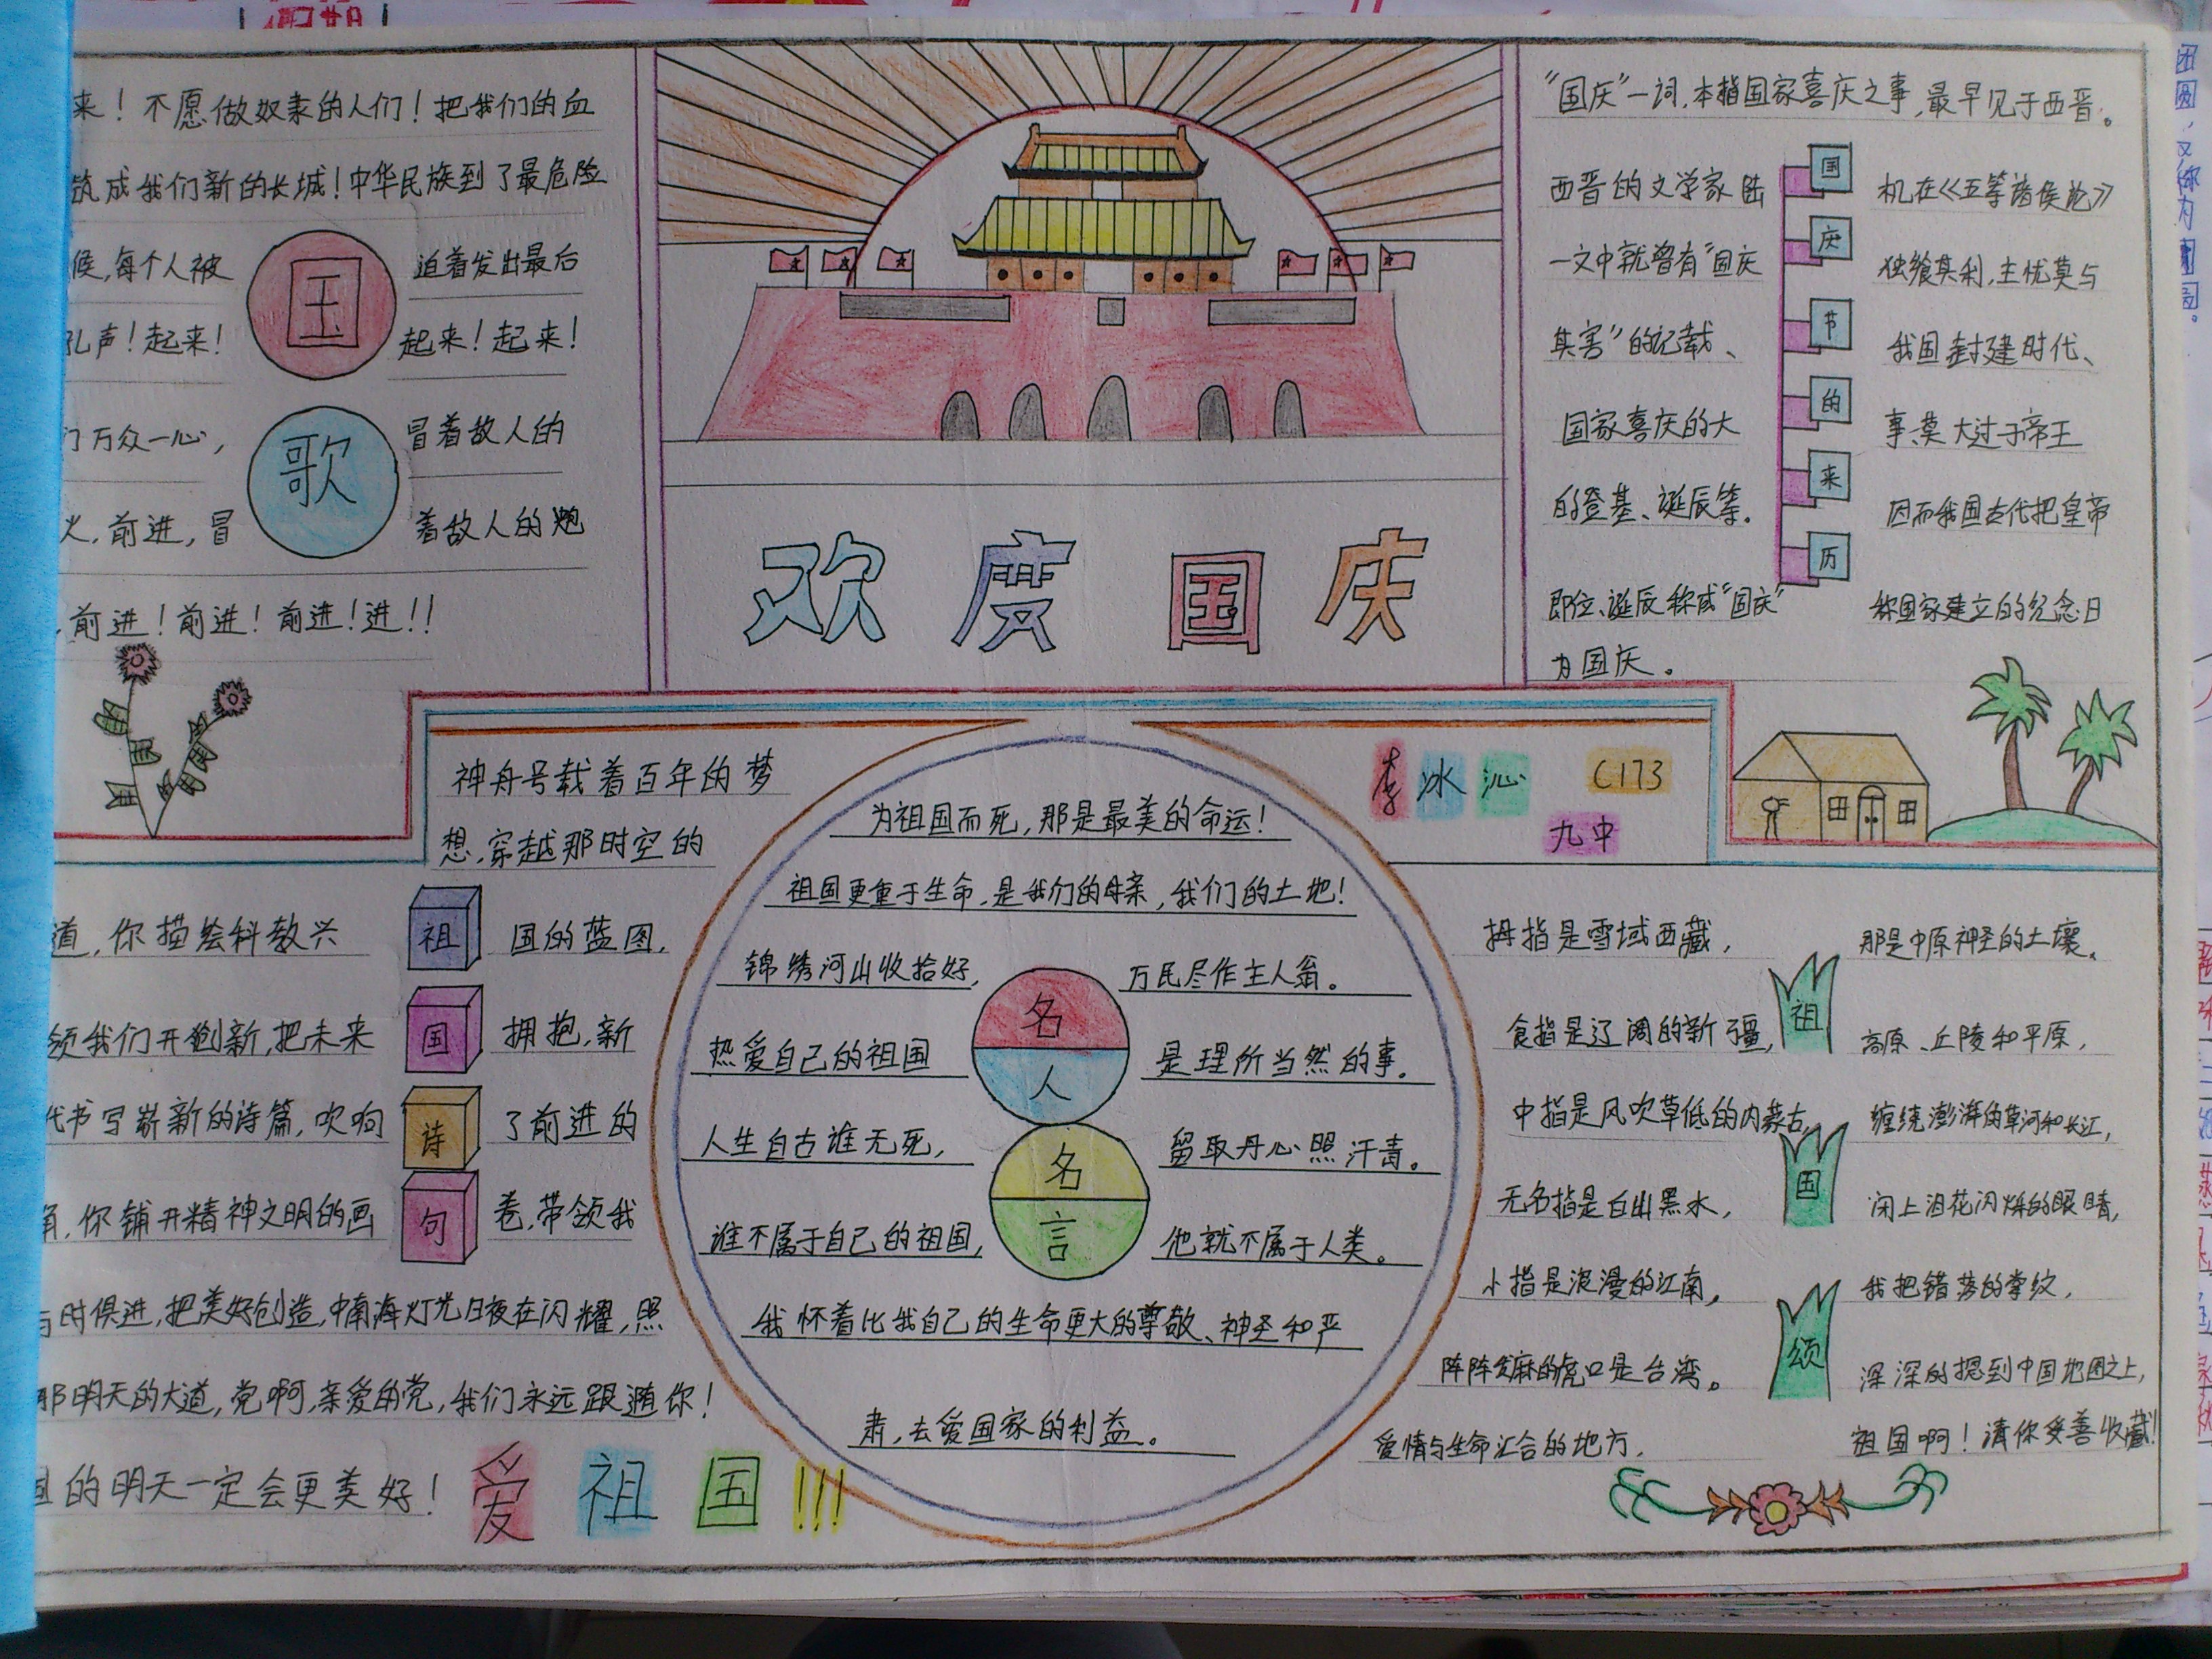 来！不愿做奴隶的人们！把我们的血
筑成我们新的长城！中华民族到了最危险
候，每个人被 迫着发出最后
声！起来！ 起来！起来！
国
歌
万众一心， 冒着敌人的
火，前进，冒 着敌人的炮
前进！前进！前进！进！！
欢度国庆
“国庆”一词，本指国家喜庆之事，最早见于西晋。
西晋的文学家陆 机在《五等诸侯论》
一文中就曾有“国庆 独飨其利，主忧莫与
其害”的记载、 我国封建时代、
国家喜庆的大 事、莫大过于帝王
的登基、诞辰等. 因而我国古代把皇帝
即位、诞辰称成“国庆” 称国家建立的纪念日
为国庆。
国
庆
节
的
来
历
神舟号载着百年的梦
想，穿越那时空的
道，你描绘科教兴 国的蓝图，
领我们开创新，把未来 拥抱，新
代书写崭新的诗篇，吹响 了前进的
角，你铺开精神文明的画 卷，带领我
与时俱进，把美好创造，中南海灯光日夜在闪耀，照
那明天的大道，党啊，亲爱的党，我们永远跟随你！
国的明天一定会更美好！
祖
国
诗
句
爱祖国!!!
为祖国而死，那是最美的命运！
祖国更重于生命，是我们的母亲，我们的土地！
锦绣河山收拾好， 万民尽作主人翁。
热爱自己的祖国 是理所当然的事.
人生自古谁无死， 留取丹心照汗青。
谁不属于自己的祖国， 他就不属于人类。
我怀着比我自己的生命更大的尊敬、神圣和严
肃，去爱国家的利益。
名
人
名
言
李冰沁 C173
九中
拇指是雪域西藏， 那是中原神圣的土壤。
食指是辽阔的新疆， 高原、丘陵和平原，
中指是风吹草低的内蒙古， 缠绕澎湃的黄河和长江，
无名指是白山黑水， 闭上泪花闪烁的眼睛，
小指是浪漫的江南， 我把错落的掌纹，
阵阵发麻的虎口是台湾。 深深的摁到中国地图之上，
爱情与生命汇合的地方， 祖国啊！请你妥善收藏！
祖
国
颂